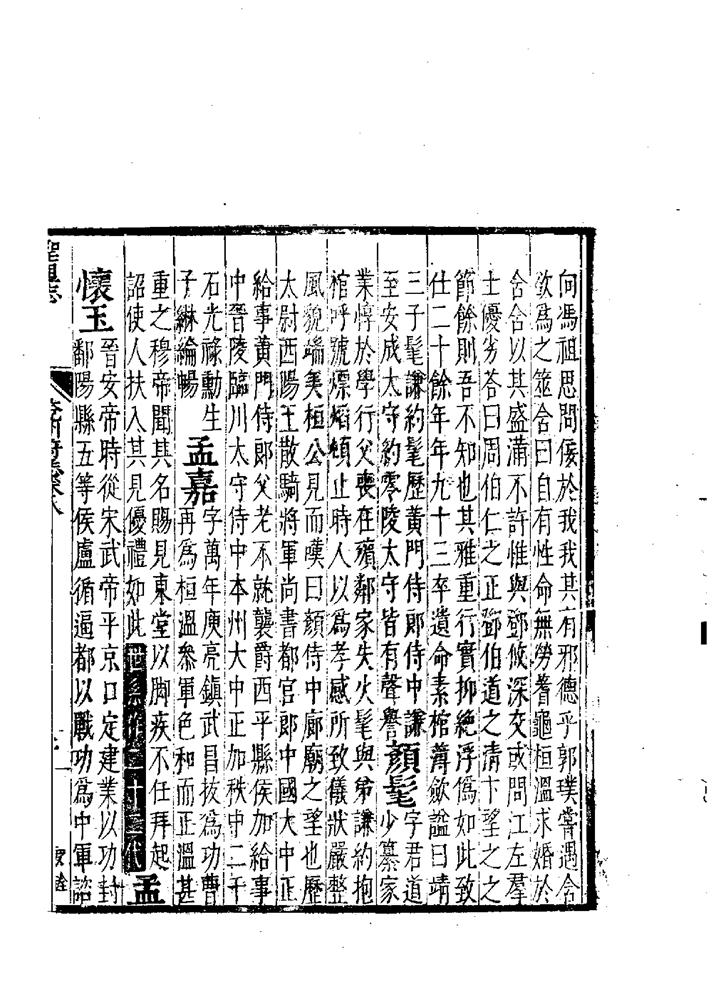 向馮祖思問佞於我我其有邪德乎郭璞嘗遇含
欲爲之筮含曰自有性命無勞蓍龜桓溫求婚於
含含以其盛滿不許惟與鄧攸深交或問江左羣
士優劣荅曰周伯仁之正鄧伯道之清卞望之之
節餘則吾不知也其雅重行實抑絶浮僞如此致
仕二十餘年年九十三卒遺命素棺薄斂諡曰靖
三子髦謙約髦歷黃門侍郎侍中謙
至安成太守約零陵太守皆有聲譽顏髦字君道少慕家
業惇於學行父喪在殯鄰家失火髦與弟謙約抱
棺呼號熛焰頓止時人以爲孝感所致儀狀嚴整
風貌端美桓公見而嘆曰顏侍中廊廟之望也歷
太尉西陽王散騎將軍尚書都官郎中國大中正
給事黃門侍郎父老不就襲爵西平縣侯加給事
中晉陵臨川太守侍中本州大中正加秩中二千
石光祿勳生
子綝綸暢孟嘉字萬年庾亮鎮武昌拔爲功曹
再爲桓溫參軍色和而正溫甚
重之穆帝聞其名賜見東堂以脚疾不任拜起
詔使人扶入其見優禮如此孟
懷玉晉安帝時從宋武帝平京口定建業以功封
鄱陽縣五等侯盧循逼都以戰功爲中軍諮